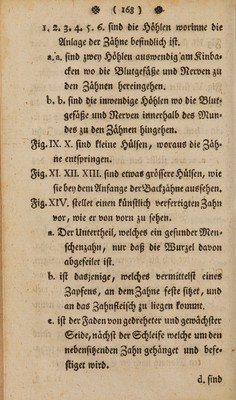 ( 168 )
1. 2. 3. 4. 5. 6. sind die Höhlen worinne die
Anlage der Zähne befindlich ist.
a. a. sind zwey Höhlen auswendig am Kinba-
cken wo die Blutgefäße und Nerven zu
den Zähnen hereingehen.
b. b. sind die inwendige Höhlen wo die Blut-
gefäße und Nerven innerhalb des Mun-
des zu den Zähnen hingehen.
Fig. IX. X. sind kleine Hülsen, woraus die Zäh-
ne entspringen.
Fig. XI. XII. XIII. sind etwas grössere Hülsen, wie
sie bey dem Anfange der Backzähne aussehen.
Fig. XIV. stellet einen künstlich verfertigten Zahn
vor, wie er von vorn zu sehen.
a. Der Untertheil, welches ein gesunder Men-
schenzahn, nur daß die Wurzel davon
abgefeilet ist.
b. ist dasjenige, welches vermittelst eines
Zapfens, an dem Zahne feste sitzet, und
an das Zahnfleisch zu liegen kommt.
c. ist der Faden von gedreheter und gewächster
Seide, nächst der Schleife welche um den
nebensitzenden Zahn gehänget und befe-
stiget wird.
d. sind